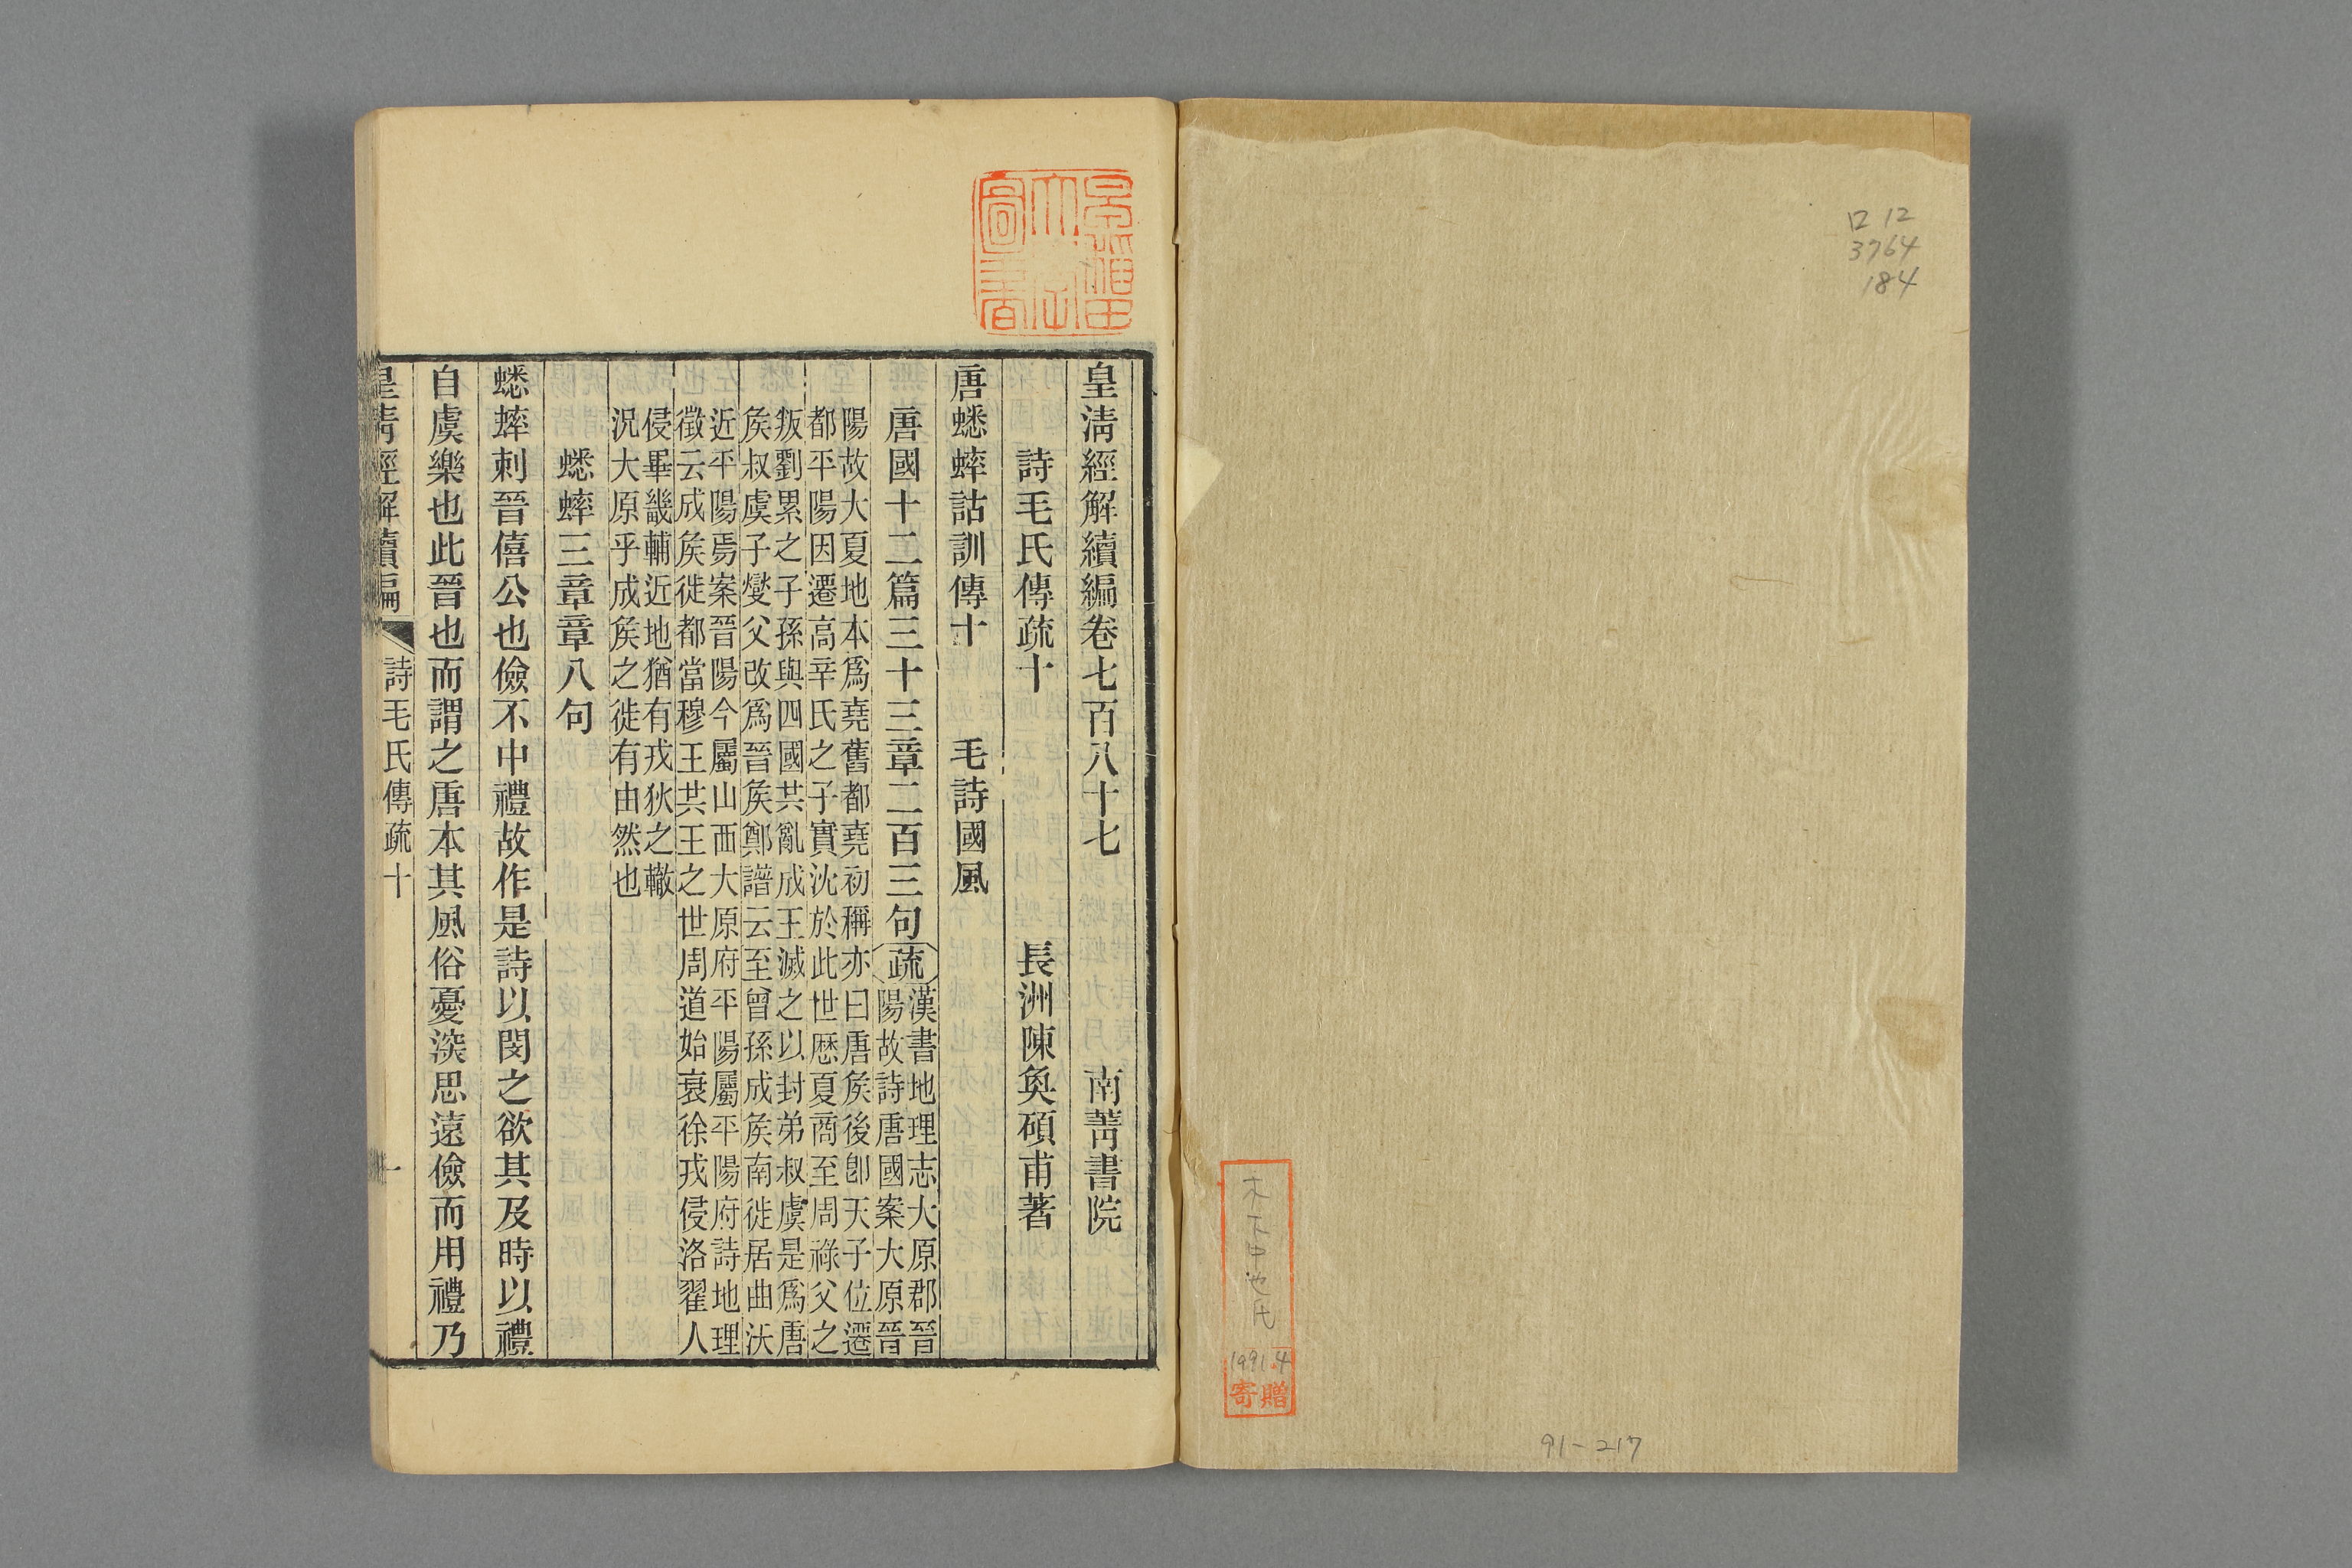 ロ 12
3764
184
91-217
1991.4
寄贈
早稲田
大學
圖書
皇淸經解續編卷七百八十七　南菁書院
詩毛氏傳疏十　長洲陳奐碩甫著
唐蟋蟀詁訓傳十　毛詩國風
唐國十二篇三十三章二百三句疏漢書地理志大原郡晉
陽故詩唐國案大原晉
陽故大夏地本爲堯舊都堯初稱亦曰唐矦後卽天子位遷
都平陽因遷高辛氏之子實沈於此世厯夏商至周祿父之
叛劉累之子孫與四國共亂成王滅之以封弟叔虞是爲唐
矦叔虞子燮父改爲晉矦鄭譜云至曾孫成矦南徙居曲沃
近平陽焉案晉陽今屬山西大原府平陽屬平陽府詩地理
徵云成矦徙都當穆王共王之世周道始衰徐戎侵洛翟人
侵畢畿輔近地猶有戎狄之轍
況大原乎成矦之徙有由然也
蟋蟀三章章八句
蟋蟀刺晉僖公也儉不中禮故作是詩以閔之欲其及時以禮
自虞樂也此晉也而謂之唐本其風俗憂深思遠儉而用禮乃
皇淸經解續編　詩毛氏傳疏十　一